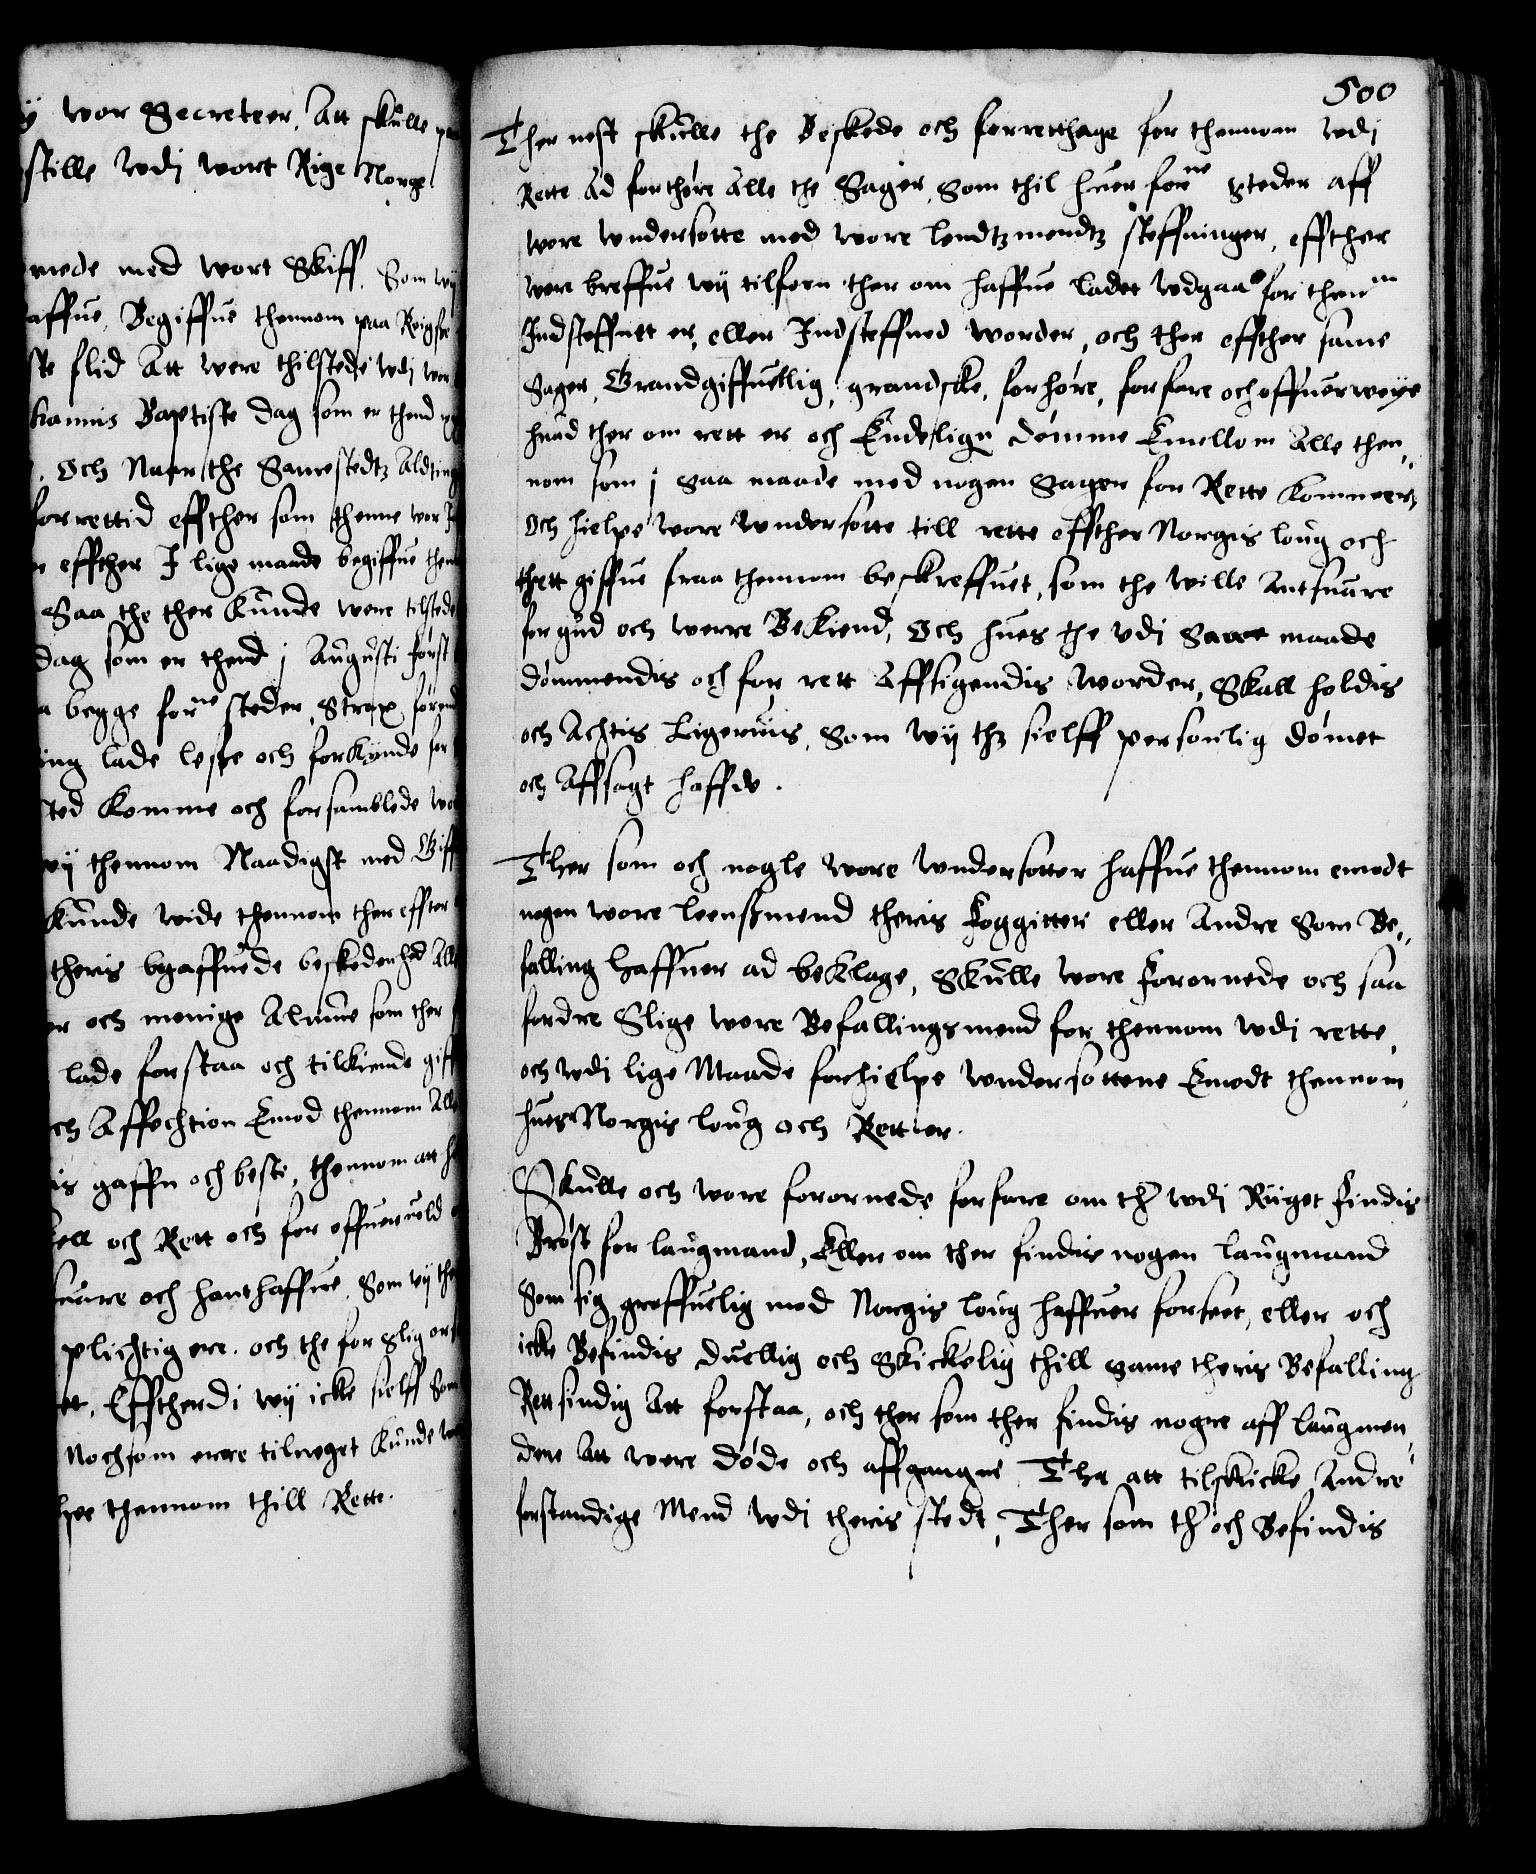 wor Secreteer. Att skulle
stille wdj wort Rige Norge
mede med wort Skiff. Som wy
haffue, Begiffue thennom paa
ste flid Att were thilstede wdj
hannis Baptiste dag som er thend
Och Naar the Samestedtz Aldting
forrettid effther som thenne wor
effther I lige maade begiffue
Saa the ther kunde were tilstede
dag som er thend j Augusti først
begge forne steder, Strax
ing lade lesse och forkynde for
sted komme och forsamblede
wij thennom Naadigst med
kunde wide thennom ther effter
theris begaffuede beskedenhed
och menige Almue som ther
lade forstaa och tilkiende
Affechtion Emod thennom
gaffn och beste, thennom att
och Rett och for offueruold
suare och hanthaffue, Som wy
plichtig ere. och the for Slig
Effttherdi wy icke sielff
Nochsom enere tilneget kunde
thennom thill Rette.
500
Ther nest skulle the Beskede och forretthage for thennom wdj
Rette Ad forhøre Alle the Sager, Som thil huer forne Steder aff
wore wndersotte med wore lendtzmendtz steffninger, effther
wore breffue wij tilforn ther om haffue ladet wdgaa for thenm
Indsteffnett er, eller Indsteffned worder, och ther effther same
Sager, Grandgiffuellig, grandske, forhøre, forfare och offuerweye
huad ther om rett er och Endelign dømme Emellom Alle then,,
nom som j Saa maade med nogen Sager for Rette kommer,
Och hielpe wore wndersotte till rette effther Norgis loug och
thett giffue fraa thennom beskreffuet, som the wille Antsuare
for gud och werre Bekiend, Och hues the vdi Same maade
dømmendis och for rett Affsigendis worder, Skall holdis
och Achtis Ligeruiis, Som wij thz sielff personlig dømet
och Affsagt haffde.
Ther som och nogle wore wndersotter haffue thennom emodt
nogen wore leenßmend theris Foggitter eller Andre Som Be,,
falling haffuer ad beklage, Skulle wore Forornede och saa
fordre Slige wore Befallingsmend for thennom wdi rette,
och wdi lige Maade forhielpe wndersottene Emodt thennom,
hues Norgis loug och Rett er.
Skulle och wore forornede forfare om ther wdi Riiget Findis
Brøst for laugmand, Eller om ther findis nogen laugmand
Som sig groffuelig mod Norgis loug haffuer forseet, eller och
icke Befindis duellig och Skickelig thill same theris Befalling
Rettsindig Att forstaa, och ther som ther findis nogre aff laugmen,
dene Att were døde och affgangne, Tha att tilskicke Andre
forstandige Mend wdi theris stedt, Ther som ther och Befindis